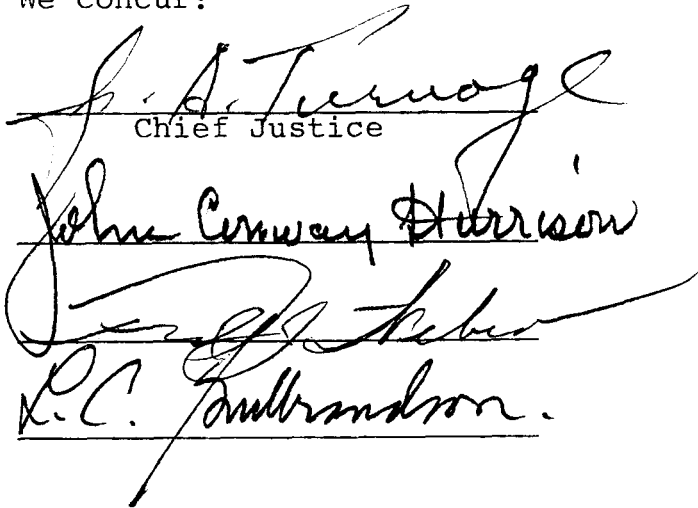 We concur:
J. A. Turnage
Chief Justice
John Conway Harrison
L. C. Gulbrandson.